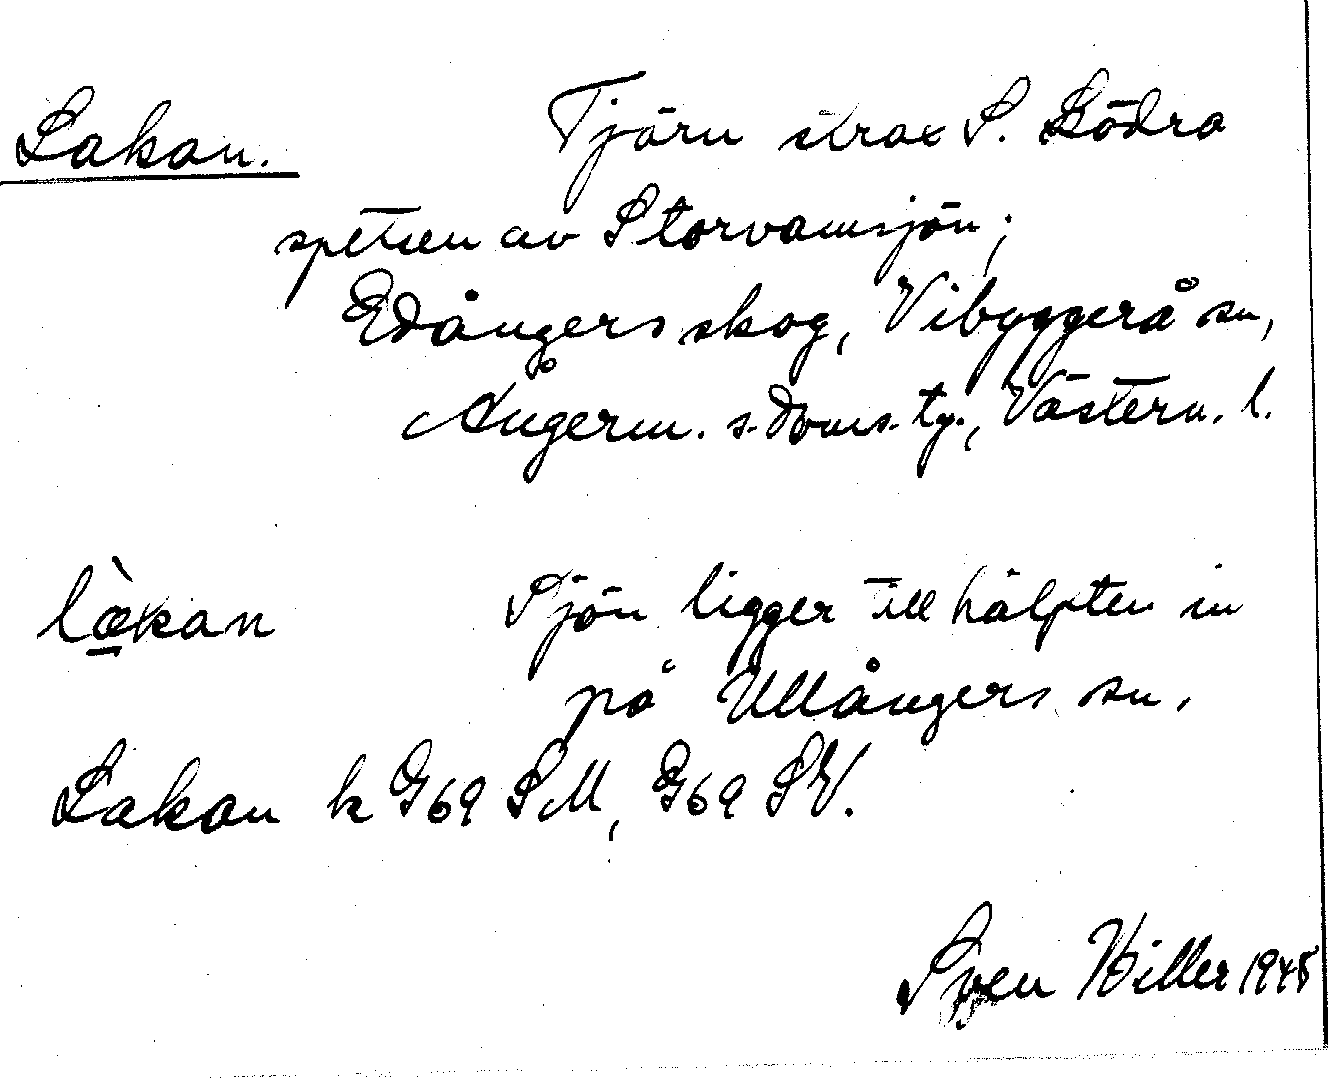 Lakan. Tjärn strax S. Södra
spetsen av Storvamsjön;
Edångers skog, Vibyggerå sn,
Ångerm. s. doms. tg., Västern. l.
làkan Sjön ligger till hälften in
på Ullångers sn.
Lakan k G69 SM, G69 SV.
Sven Hiller 1945